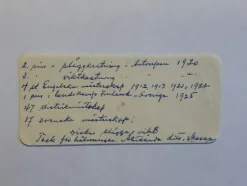 2 pris - släggkastning - Antwerpen 1920
3 " viktkastning " " "
4 st Engelska mästerskap 1912, 1913, 1920, 192
1 pris i landskamp Finland - Sverige 1925
47 distriktmästerskap
17 svenska mästerskap.
slägga vikt
Tack för